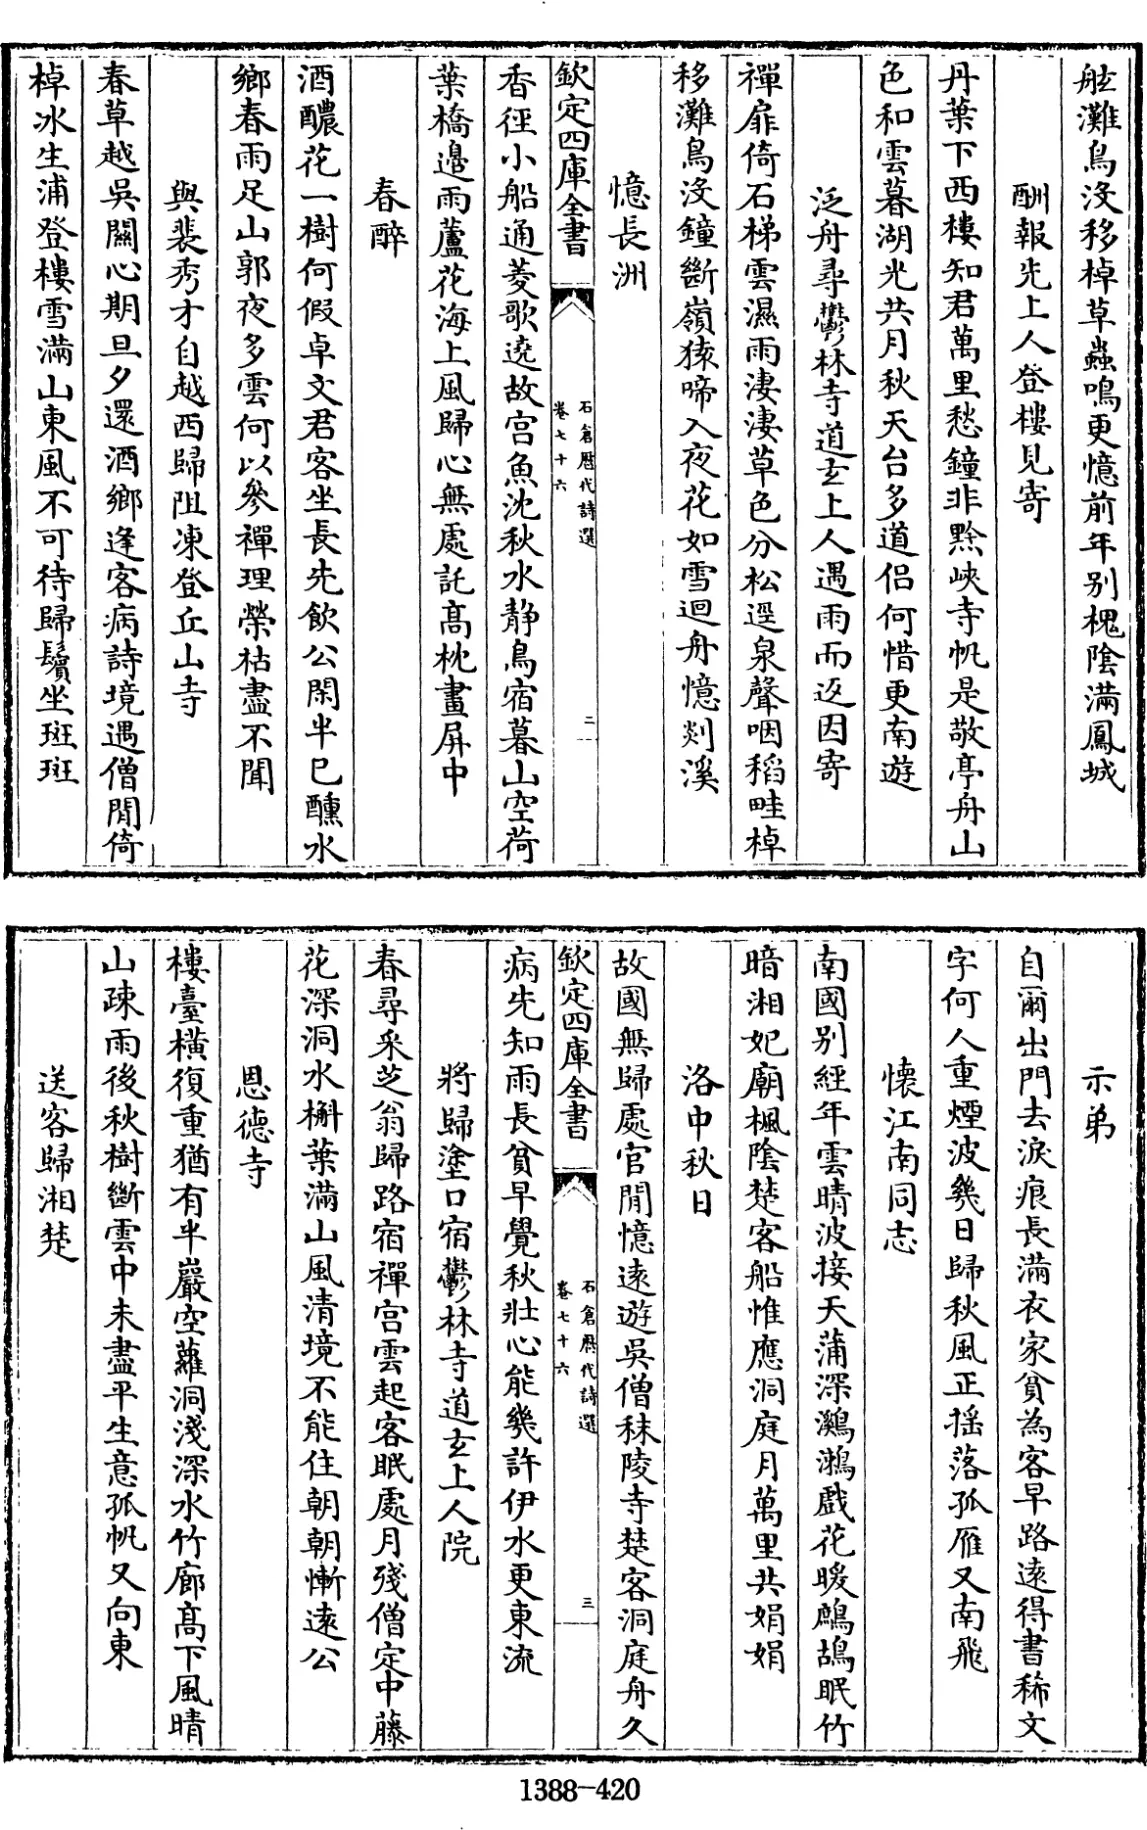 舷灘鳥没移棹草蟲鳴更憶前年别槐陰滿鳳城
酬報先上人登樓見寄
丹葉下西樓知君萬里愁鐘非黔峽寺帆是敬亭舟山
色和雲暮湖光共月秋天台多道侣何惜更南遊
泛舟尋鬱林寺道玄上人遇雨而返因寄
禪扉倚石梯雲濕雨淒淒草色分松逕泉聲咽稻畦棹
移灘鳥没鐘斷嶺猿啼入夜花如雪迴舟憶剡溪
憶長洲
欽定四庫全書
石倉歴代詩選
卷七十六
二
香徑小船通菱歌遶故宫魚沈秋水静鳥宿暮山空荷
葉橋邊雨蘆花海上風歸心無處託髙枕畫屏中
春醉
酒醲花一樹何假卓文君客坐長先飲公閑半已醺水
鄉春雨足山郭夜多雲何以參禪理榮枯盡不聞
與裴秀才自越西歸阻凍登丘山寺
春草越吳關心期旦夕還酒鄉逢客病詩境遇僧閒倚
棹冰生浦登樓雪滿山東風不可待歸鬢坐斑斑
示弟
自爾出門去淚痕長滿衣家貧為客早路逺得書稀文
字何人重煙波幾日歸秋風正揺落孤雁又南飛
懐江南同志
南國别經年雲晴波接天蒲深鸂鶒戲花暖鷓鴣眠竹
暗湘妃廟楓陰楚客船惟應洞庭月萬里共娟娟
洛中秋日
故國無歸處官閒憶逺遊吳僧秣陵寺楚客洞庭舟久
欽定四庫全書
石倉歴代詩選
卷七十六
三
病先知雨長貧早覺秋壯心能幾許伊水更東流
將歸塗口宿鬱林寺道玄上人院
春尋采芝翁歸路宿禪宫雲起客眠處月殘僧定中藤
花深洞水槲葉滿山風清境不能住朝朝慚逺公
恩德寺
樓臺横復重猶有半巖空蘿洞淺深水竹廊髙下風晴
山疎雨後秋樹斷雲中未盡平生意孤帆又向東
送客歸湘楚
1388-420